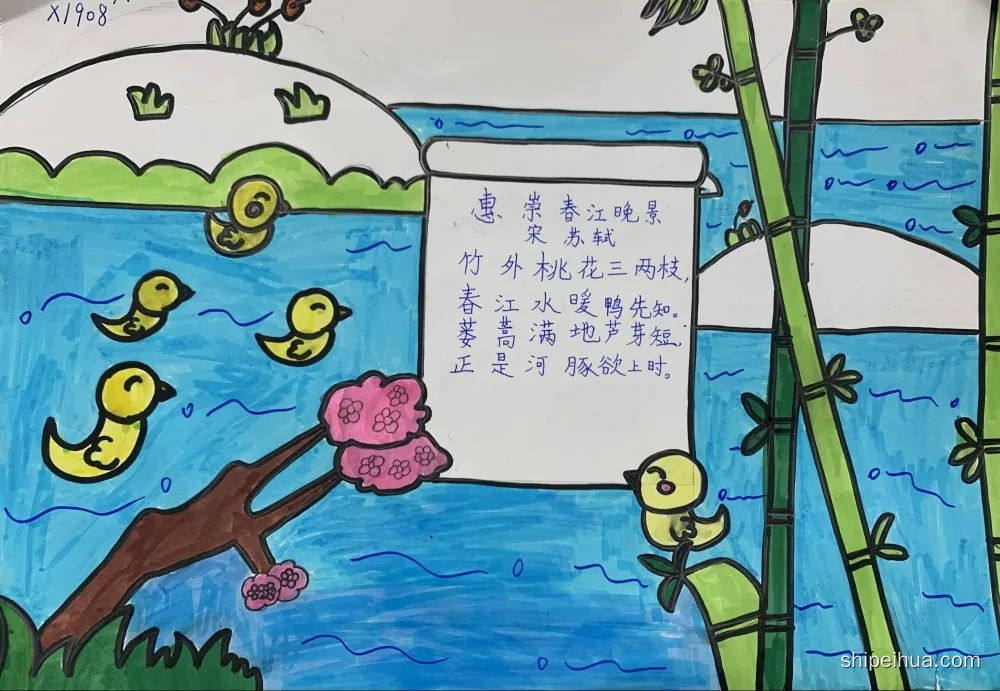 X1908
惠崇春江晚景
宋 苏轼
竹外桃花三两枝,
春江水暖鸭先知。
蒌蒿满地芦芽短,
正是河豚欲上时。
shipeihua.com